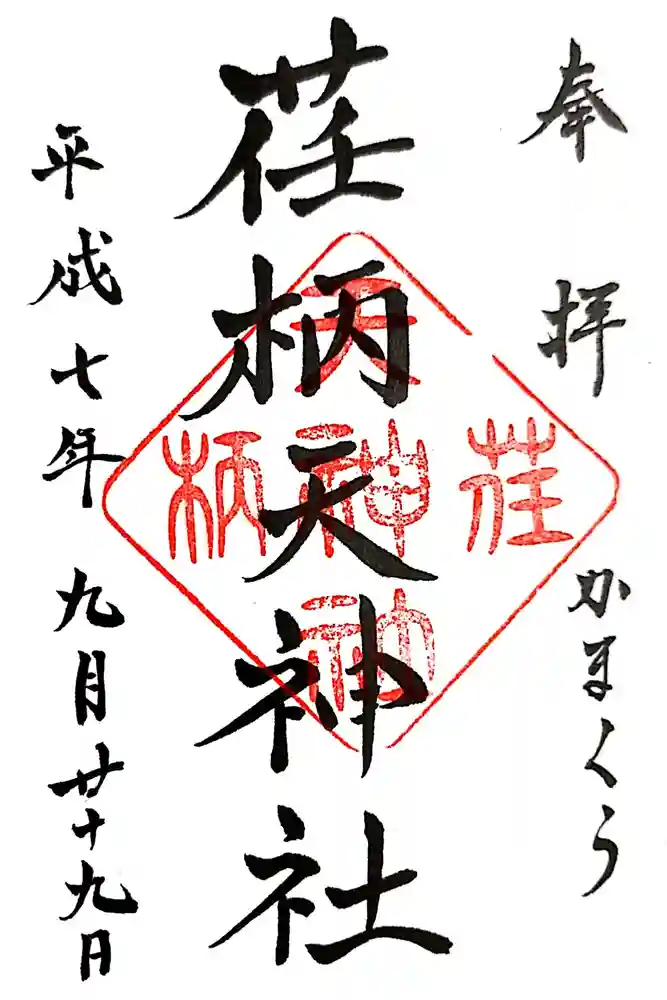 奉拝 かまくら
荏柄天神社
平成七年九月廿十九日
荏柄天神